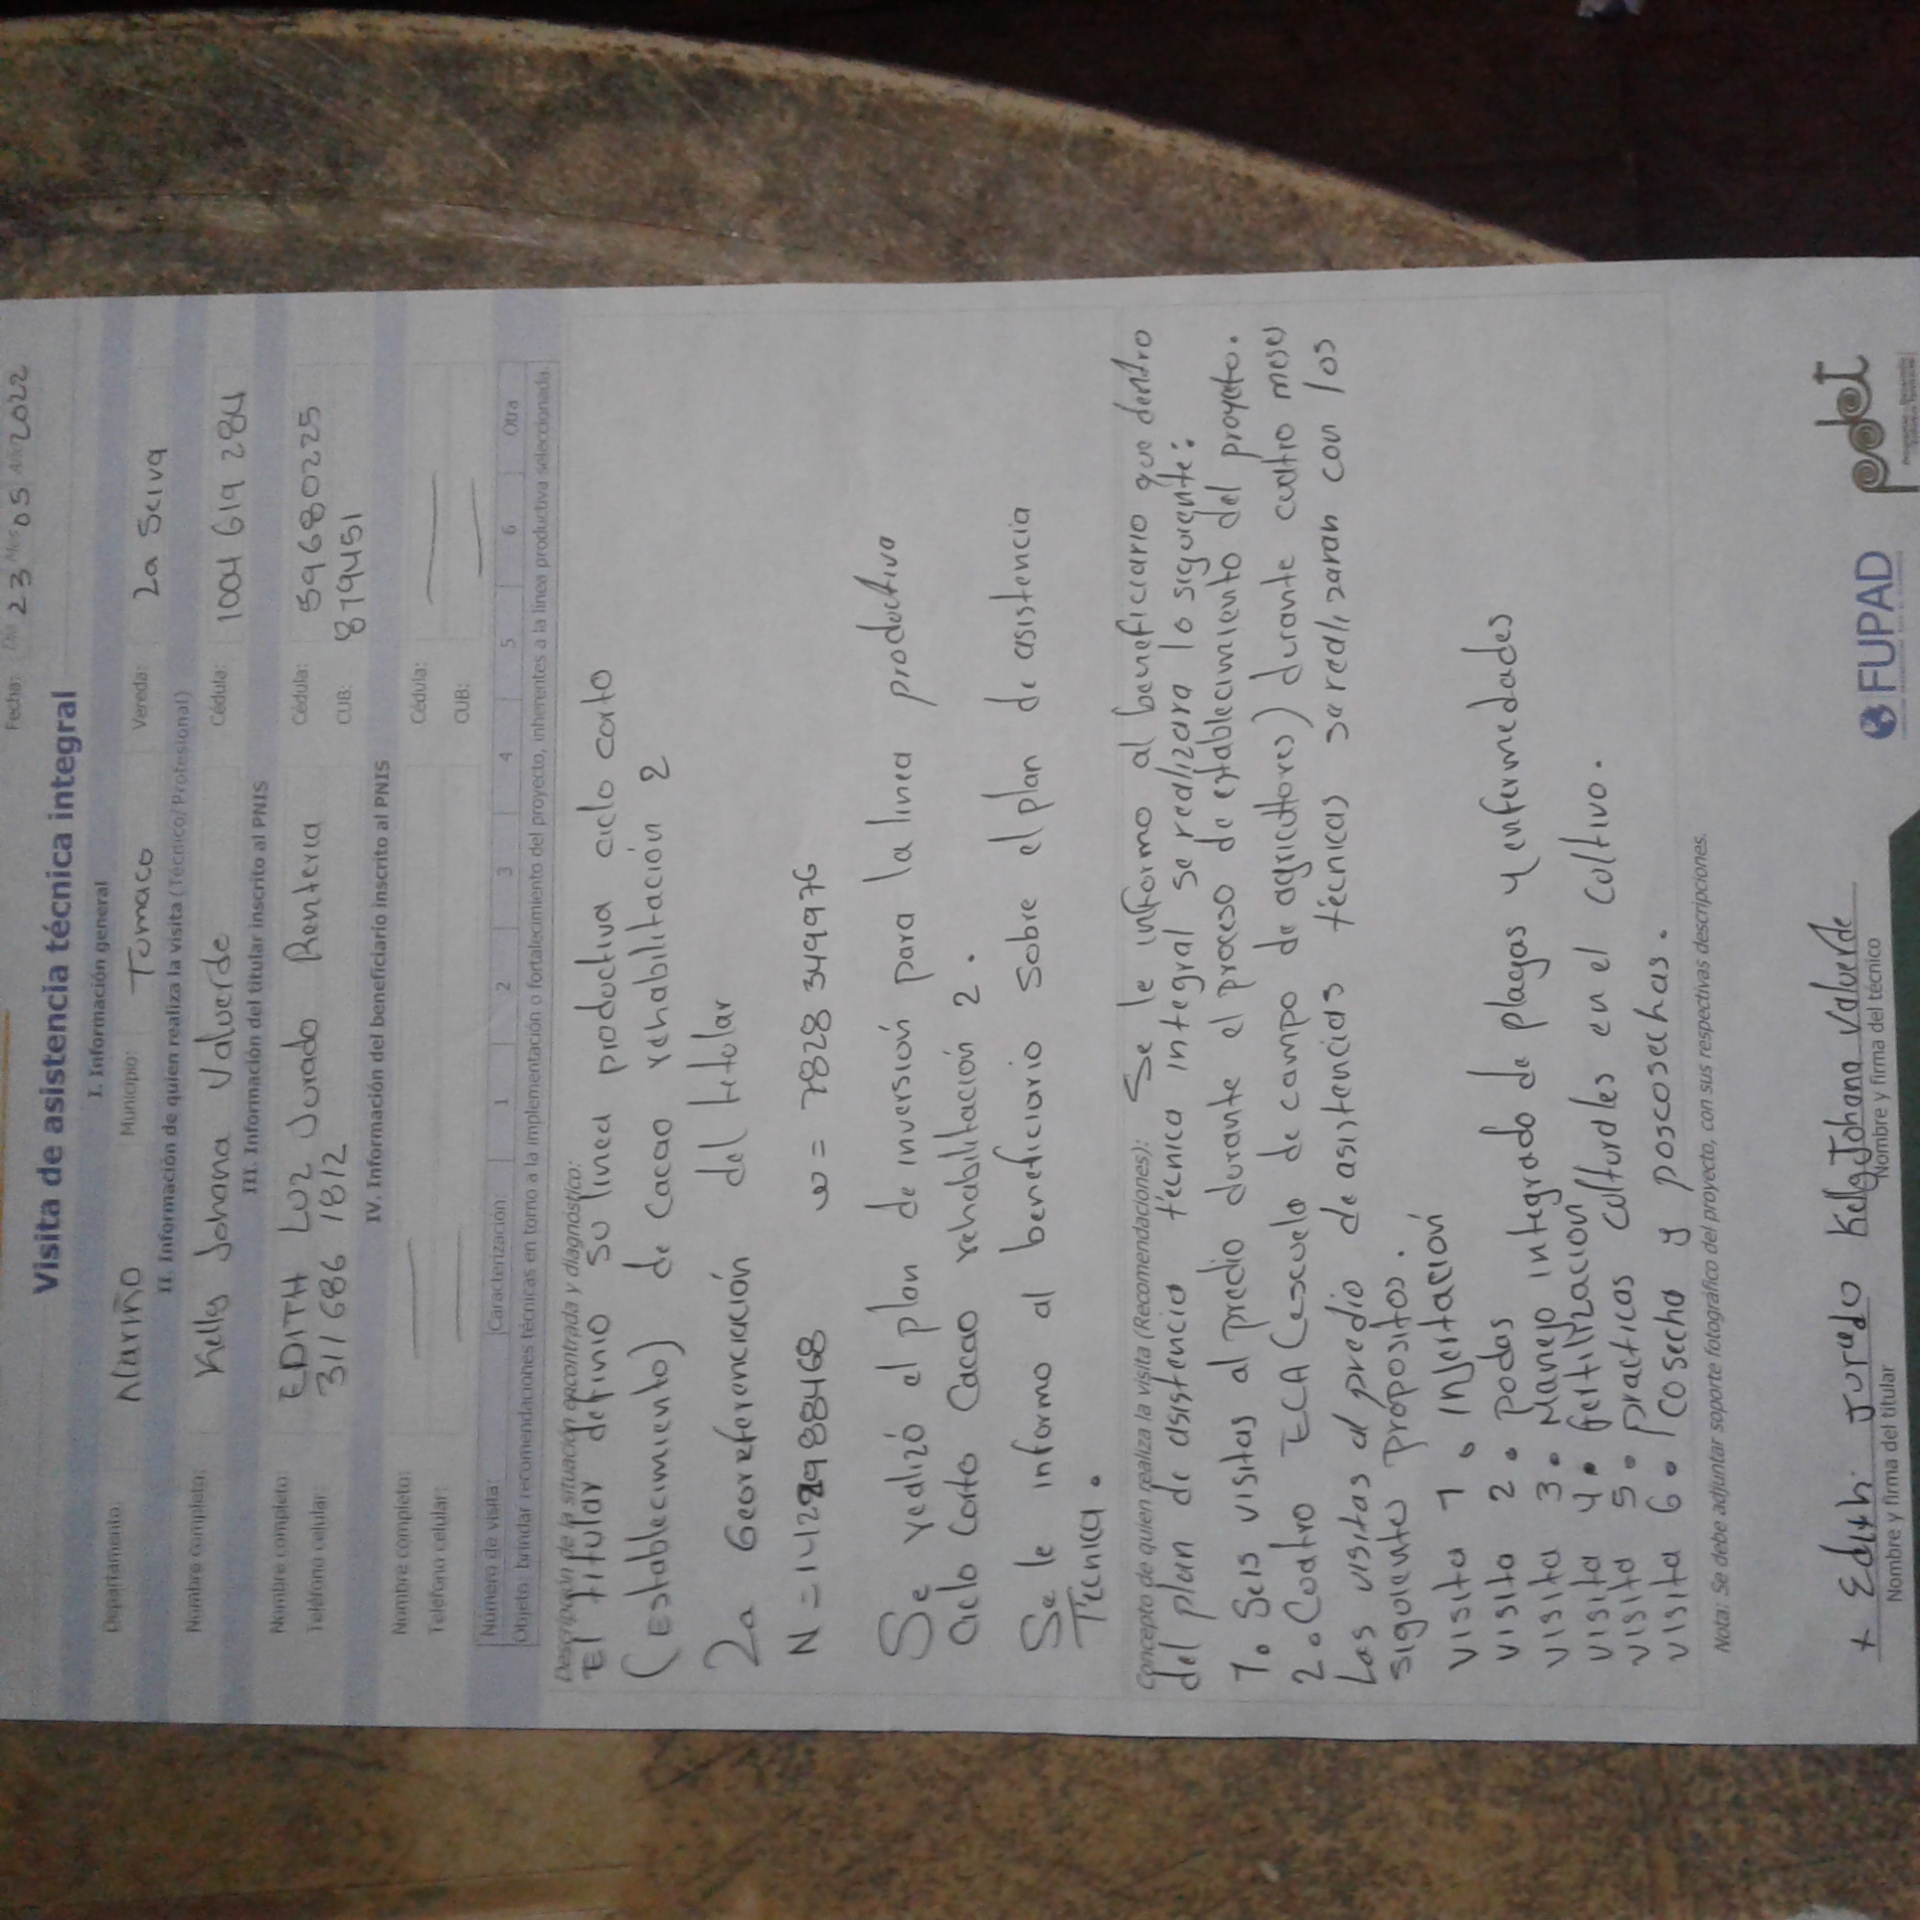 Fecha: Día 23 Mes 05 Año 2022
Visita de asistencia técnica integral
I. Información general
Departamento: Nariño Municipio: Tumaco Vereda: La Selva
II. Información de quien realiza la visita (Técnico/Profesional)
Nombre completo: Kelly Johana Valverde Cédula: 1004 619 284
III. Información del titular inscrito al PNIS
Nombre completo: EDITH LUZ Jurado Renteria Cédula: 59680225
Teléfono celular: 311 686 1812 CUB: 879451
IV. Información del beneficiario inscrito al PNIS
Nombre completo: Cédula:
Teléfono celular: CUB:
Número de visita: Caracterización: 1 2 3 4 5 6 Otra
Objeto: brindar recomendaciones técnicas en torno a la implementación o fortalecimiento del proyecto, inherentes a la línea productiva seleccionada.
Descripción de la situación encontrada y diagnóstico:
El titular definio su linea productiva ciclo corto
(Establecimiento) de Cacao rehabilitación 2
La Georeferenciación del titular
N = w = 7828 349976
Se realizó el plan de inversión para la linea productiva
Ciclo Corto Cacao rehabilitación 2.
Se le informo al beneficiario sobre el plan de asistencia
Técnica.
Concepto de quien realiza la visita (Recomendaciones): Se le informo al beneficiario que dentro
del plan de asistencia técnica integral se realizara lo siguiente:
1. Seis visitas al predio durante el proceso de establecimiento del proyecto.
2. Cuatro ECA (escuela de campo de agricultores) durante cuatro meses
Las visitas al predio de asistencias técnicas se realizaran con los
siguientes propositos.
visita 1. Injertación
visita 2. podas
visita 3. Manejo integrado de plagas y enfermedades
visita 4. fertilización
visita 5. practicas culturales en el cultivo.
visita 6. Cosecha y poscosechas.
Nota: Se debe adjuntar soporte fotográfico del proyecto, con sus respectivas descripciones.
x Edith Jurado Kelly Johana Valverde
Nombre y firma del titular Nombre y firma del técnico
FUPAD pdet